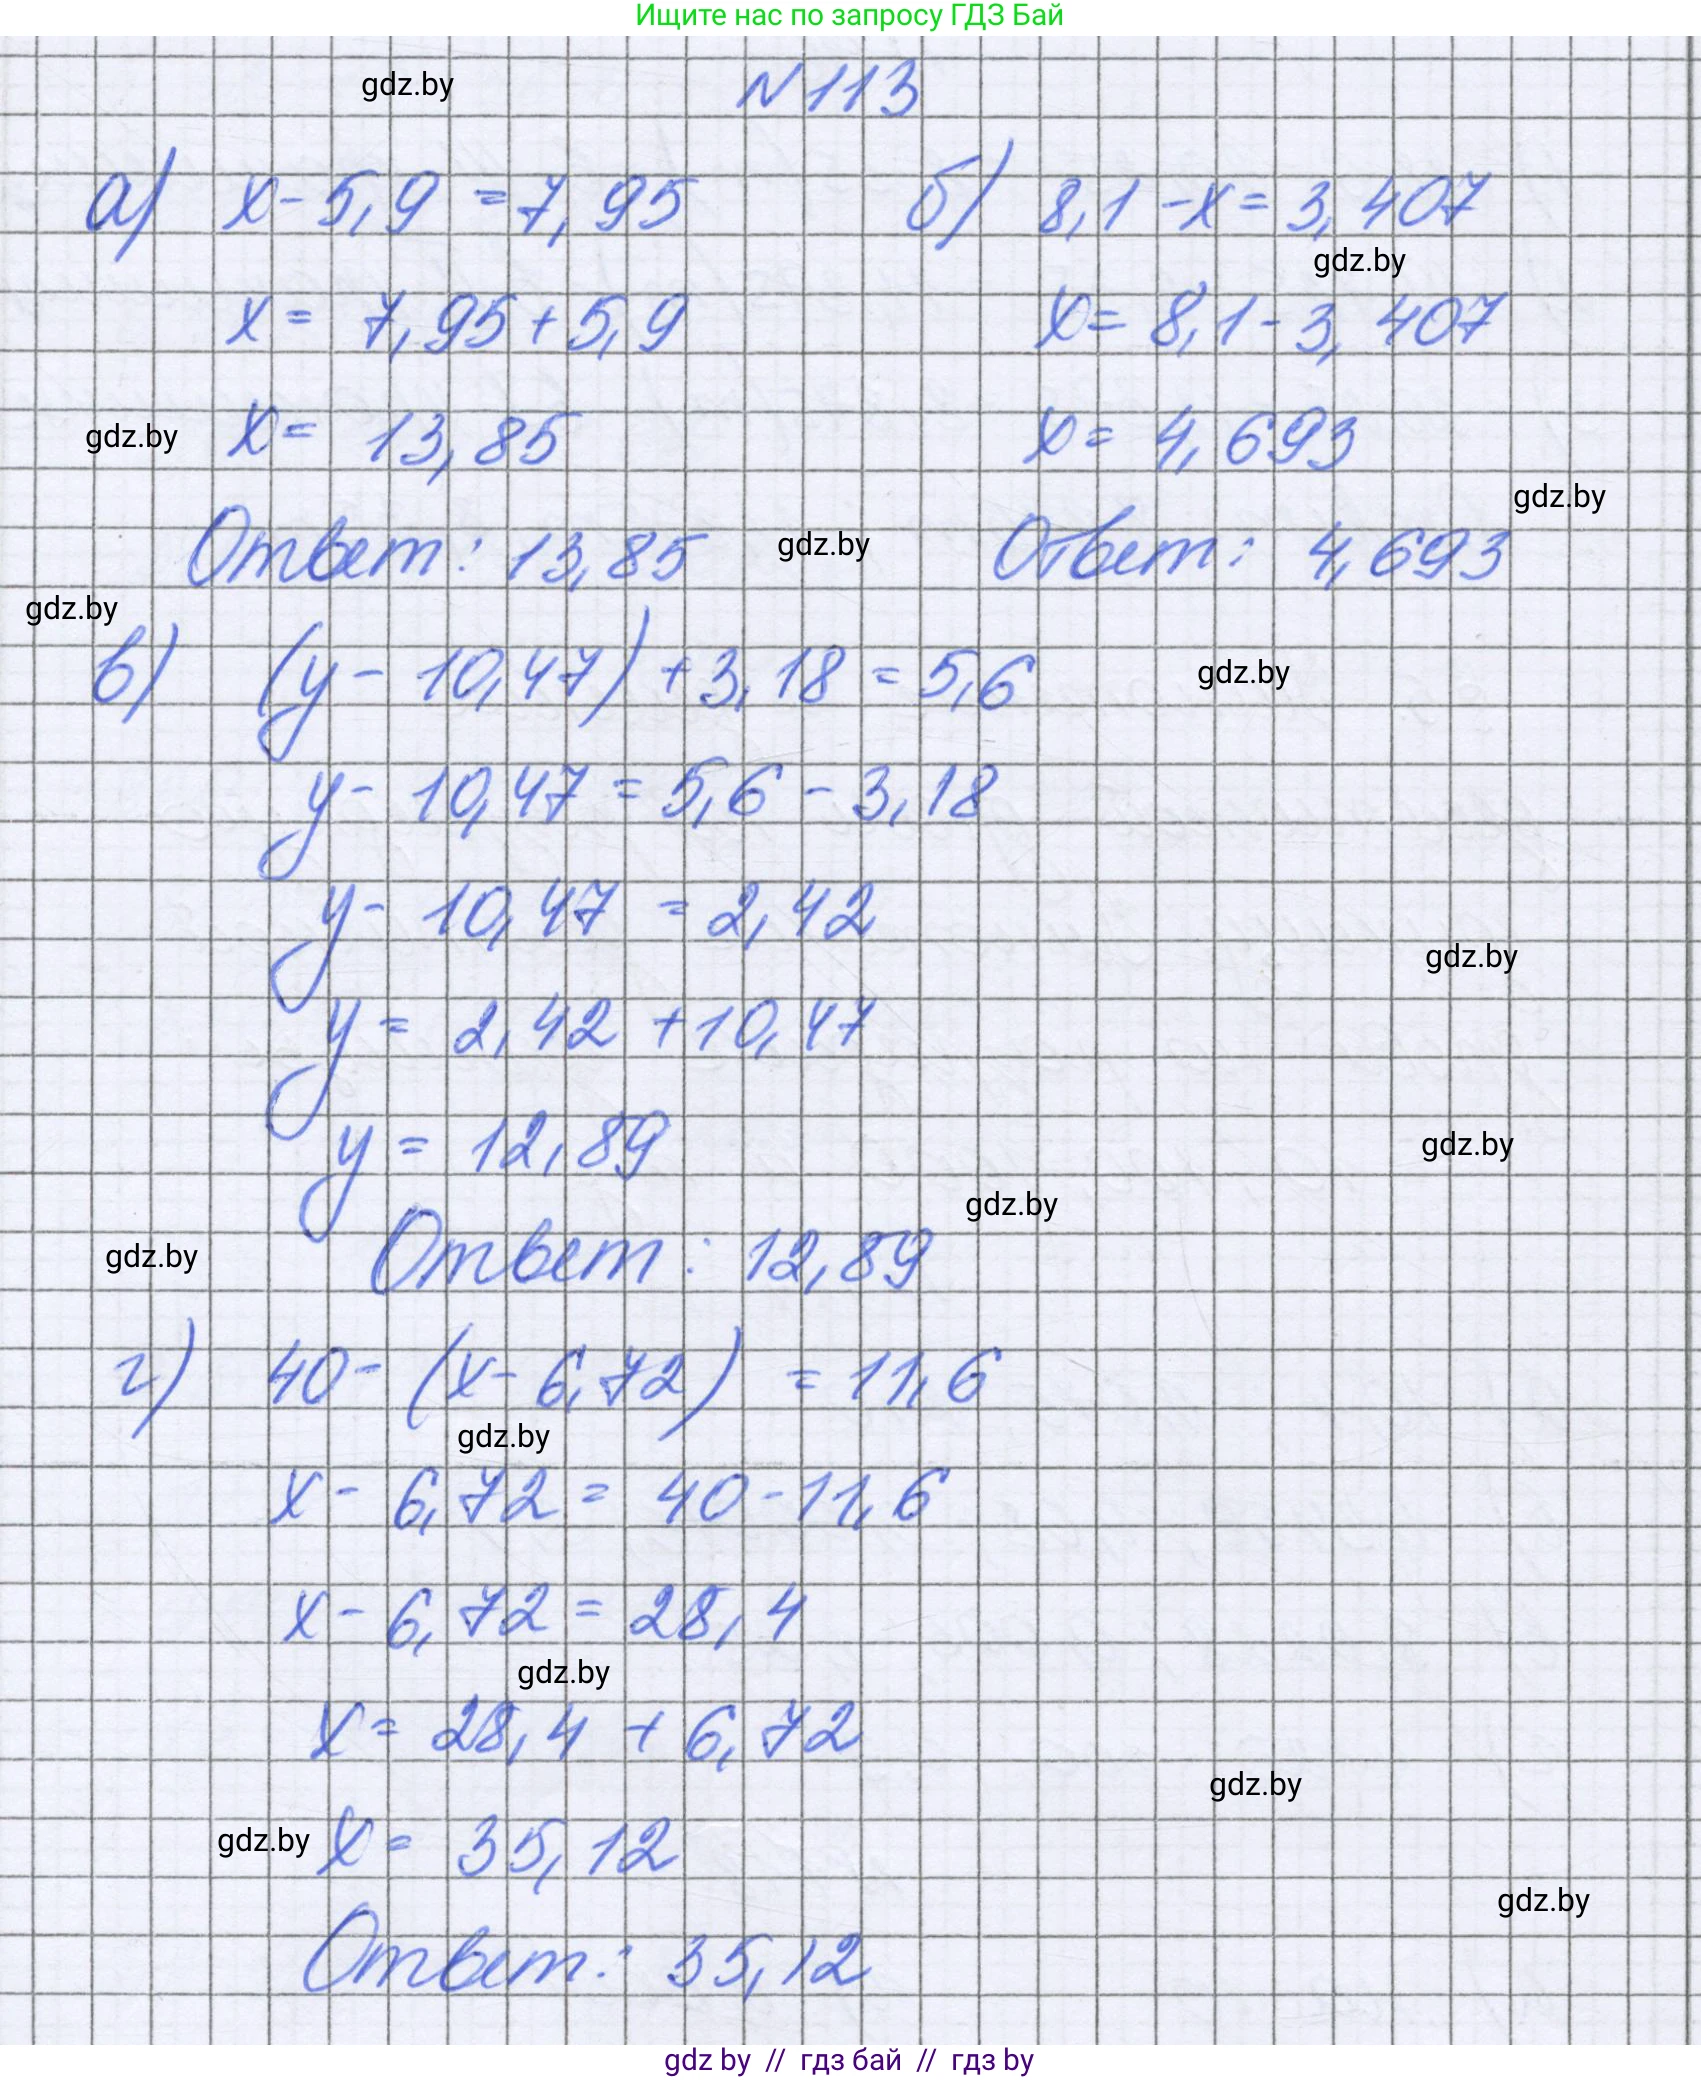 Ищите нас по запросу ГДЗ Бай
gdz.by
N113
а) x - 5,9 = 7,95
б) 8,1 - x = 3,407
gdz.by
x = 7,95 + 5,9
x = 8,1 - 3,407
gdz.by
x = 13,85
x = 4,693
gdz.by
Ответ: 13,85
gdz.by
Ответ: 4,693
gdz.by
в) (y - 10,47) + 3,18 = 5,6
gdz.by
y - 10,47 = 5,6 - 3,18
y - 10,47 = 2,42
gdz.by
y = 2,42 + 10,47
y = 12,89
gdz.by
gdz.by
gdz.by
Ответ: 12,89
г) 40 - (x - 6,72) = 11,6
gdz.by
x - 6,72 = 40 - 11,6
x - 6,72 = 28,4
gdz.by
x = 28,4 + 6,72
gdz.by
gdz.by
x = 35,12
gdz.by
Ответ: 35,12
gdz by // гдз бай // гдз by